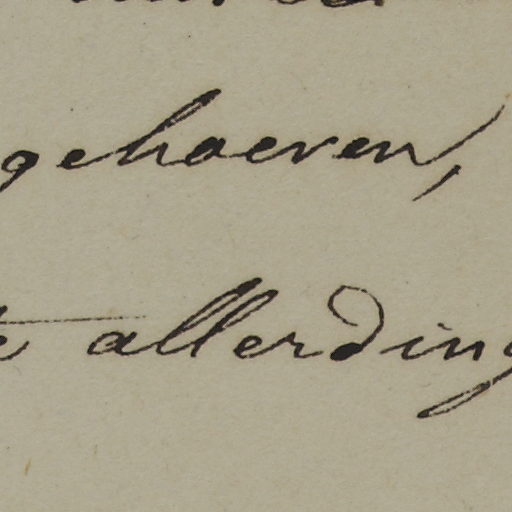 gehoeven,
te allerding